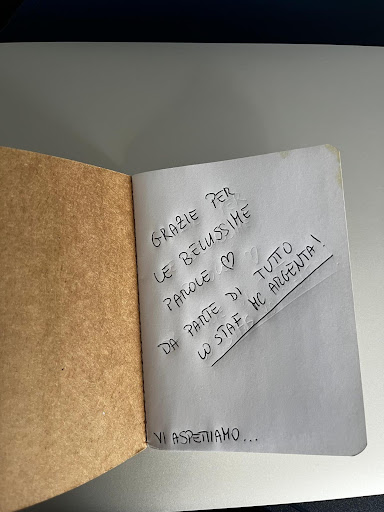 GRAZIE PER
LE BELLISSIME
PAROLE ♡
DA PARTE DI TUTTO
LO STAF MC ARGENTA!
VI ASPETTIAMO...